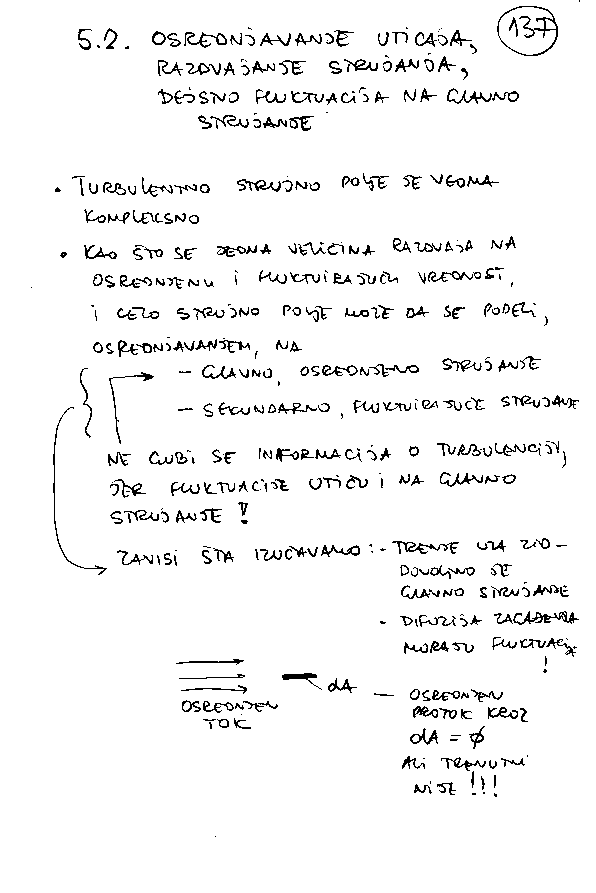 137
5.2. OSREDNJAVANJE UTICAJA,
RAZDVAJANJE STRUJANJA,
DEJSTVO FLUKTUACIJA NA GLAVNO
STRUJANJE
• TURBULENTNO STRUJNO POLJE JE VEOMA
KOMPLEKSNO
• KAO ŠTO SE JEDNA VELIČINA RAZDVAJA NA
OSREDNJENU I FLUKTUIRAJUĆU VREDNOST,
I CELO STRUJNO POLJE MOŽE DA SE PODELI,
OSREDNJAVANJEM, NA
- GLAVNO, OSREDNJENO STRUJANJE
- SEKUNDARNO, FLUKTUIRAJUĆE STRUJANJE
NE GUBI SE INFORMACIJA O TURBULENCIJI,
JER FLUKTUACIJE UTIČU I NA GLAVNO
STRUJANJE!
ZAVISI ŠTA IZUČAVAMO: - TRENJE UZ ZID -
DOVOLJNO JE
GLAVNO STRUJANJE
- DIFUZIJA ZAGAĐENJA
MORAJU FLUKTUACIJE
!
OSREDNJEN
TOK
dA
- OSREDNJEN
PROTOK KROZ
dA = ∅
ALI TRENUTNI
NIJE!!!